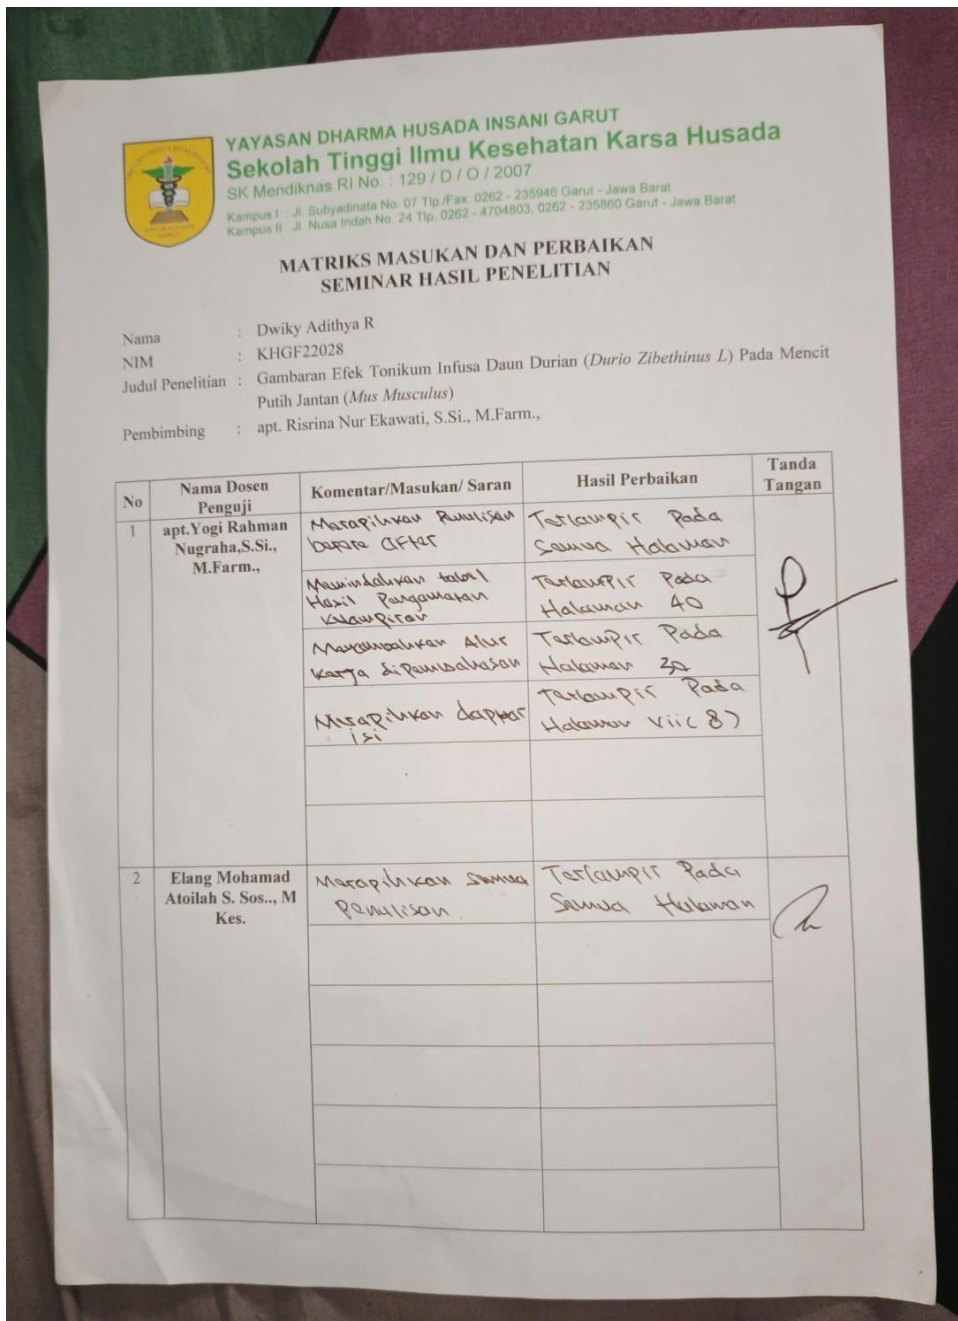 YAYASAN DHARMA HUSADA INSANI GARUT
Sekolah Tinggi Ilmu Kesehatan Karsa Husada
SK Mendiknas RI No. : 129 / D / O / 2007
Kampus I : Jl. Subyadinata No. 07 Tlp./Fax. 0262 - 235946 Garut - Jawa Barat
Kampus II : Jl. Nusa Indah No. 24 Tlp. 0262 - 4704803, 0262 - 235860 Garut - Jawa Barat
MATRIKS MASUKAN DAN PERBAIKAN
SEMINAR HASIL PENELITIAN
Nama : Dwiky Adithya R
NIM : KHGF22028
Judul Penelitian : Gambaran Efek Tonikum Infusa Daun Durian (Durio Zibethinus L) Pada Mencit
Putih Jantan (Mus Musculus)
Pembimbing : apt. Risrina Nur Ekawati, S.Si., M.Farm.,
No Nama Dosen Penguji Komentar/Masukan/ Saran Hasil Perbaikan Tanda Tangan
1 apt.Yogi Rahman
Nugraha,S.Si.,
M.Farm.,
Merapihkan Penulisan
before after
Terlampir Pada
Semua Halaman
Memindahkan tabel
Hasil Pengamatan
Terlampir Pada
Halaman 40
Menambahkan Alur
Kerja dipembahasan
Terlampir Pada
Halaman
Merapihkan daptar
isi
Terlampir Pada
Halaman vii( 8 )
2 Elang Mohamad
Atoilah S. Sos.., M
Kes.
Merapihkan Semua
Penulisan
Terlampir Pada
Semua Halaman